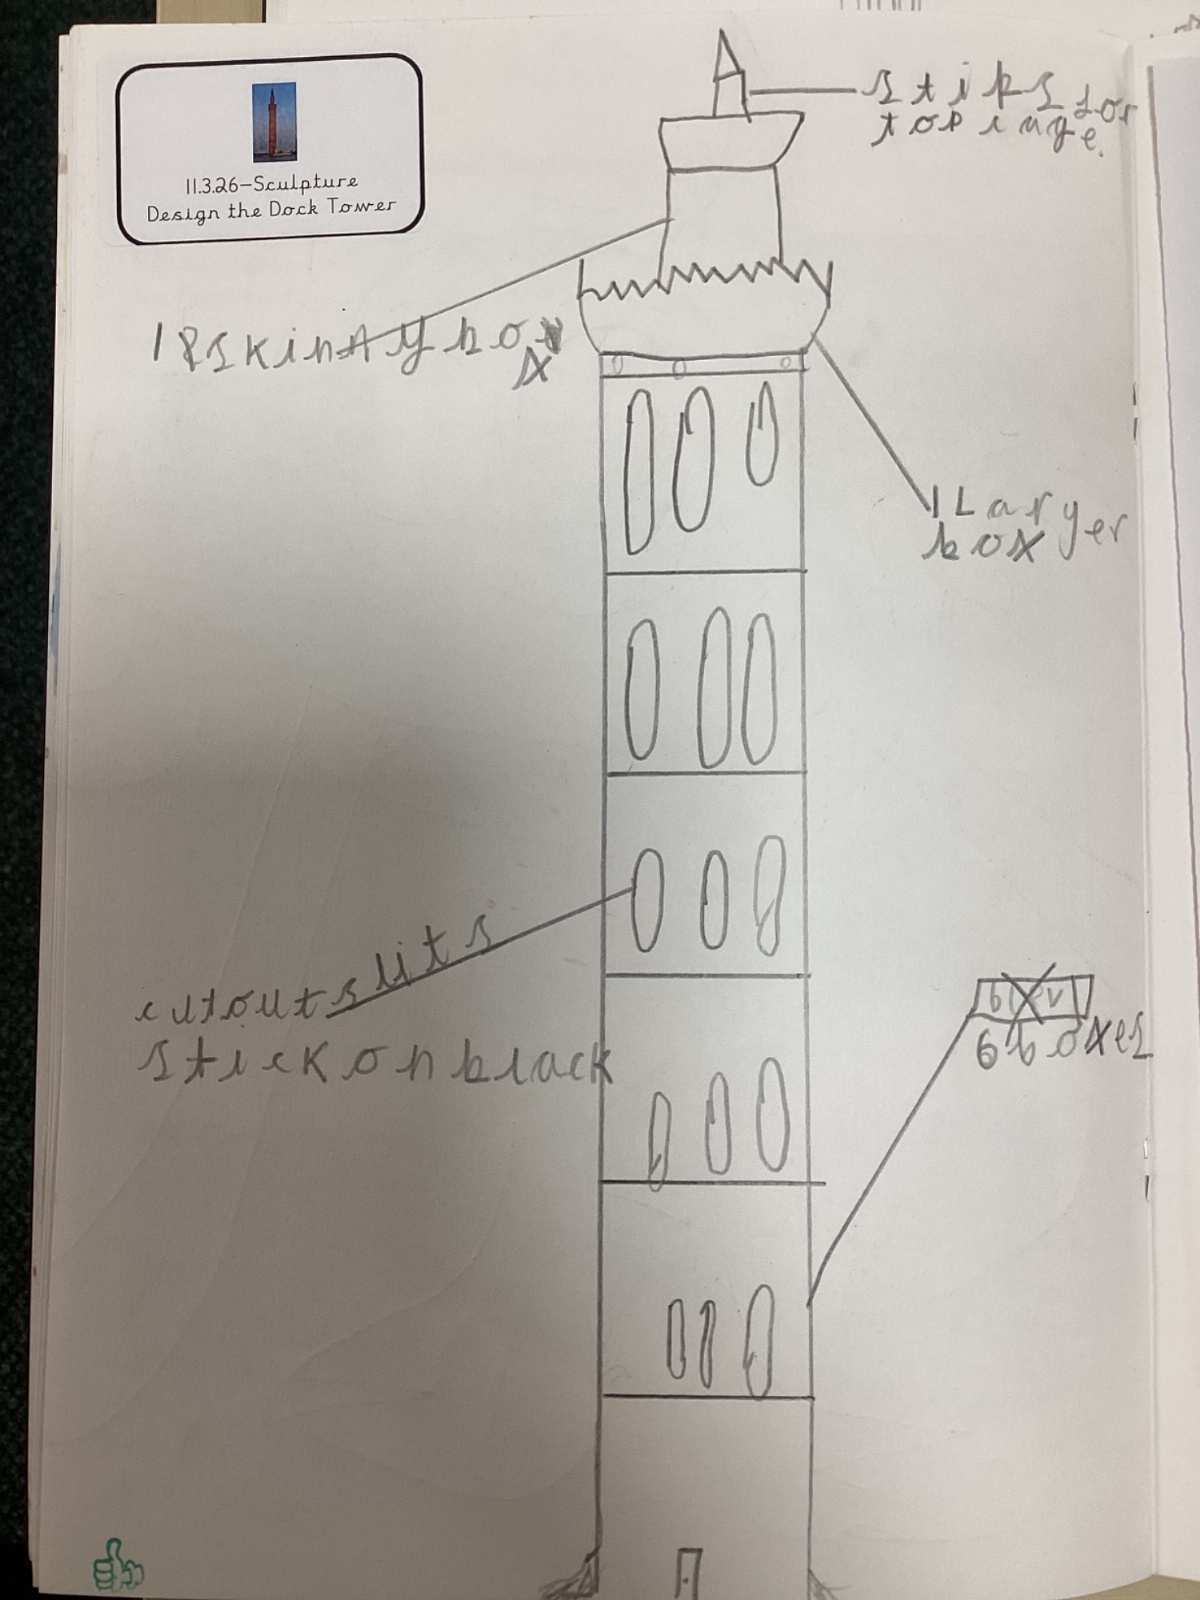 11.3.26-Sculpture
Design the Dock Tower
stiks for
topinge.
box
1 Larger
box
cutout slits
stick on black
6 boxes